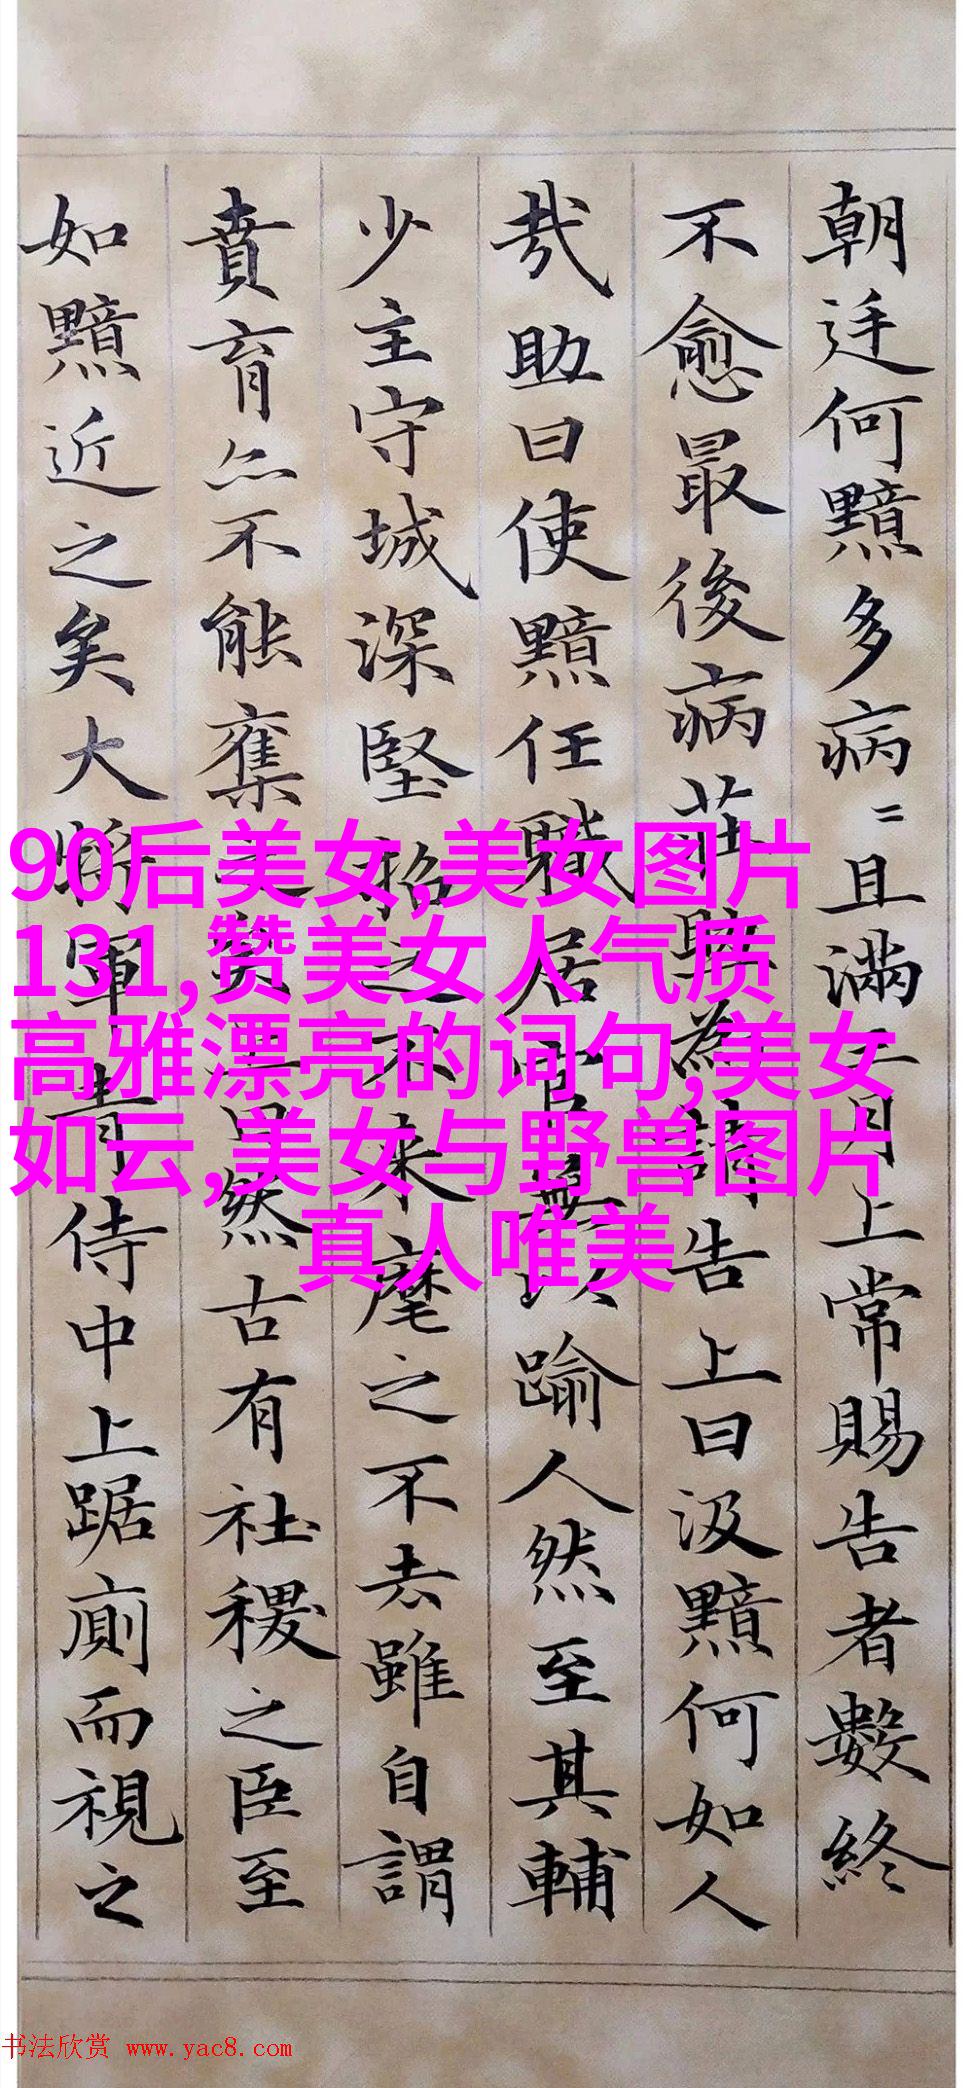 朝廷何黯多病〻且滿三月上常賜告者數終
不愈最後病莊助為請告上曰汲黯何如人
哉助曰使黯任職居官無以踰人然至其輔
少主守城深堅招之不来麾之不去雖自謂
賁育亦不能奪之矣上曰然古有社稷之臣至
如黯近之矣大将軍青侍中上踞廁而視之
90后美女,美女图片
131,赞美女人气质
高雅漂亮的词句,美女
如云,美女与野兽图片
真人唯美
书法欣赏 www.yac8.com